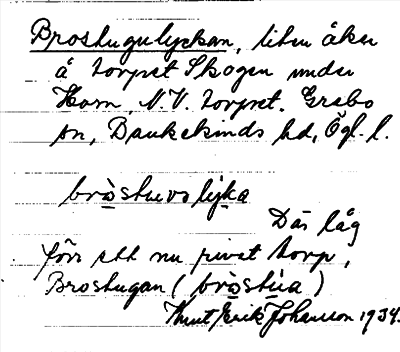 Brostugulyckan, liten åker
å torpet Skogen under
Horn, N.V. torpet. Grebo
sn, Bankekinds hd, Ögl. l.
bròstuvslyka
Där låg
förr ett nu rivet torp,
Brostugan (bròstùa)
Knut Erik Johansson 1934.